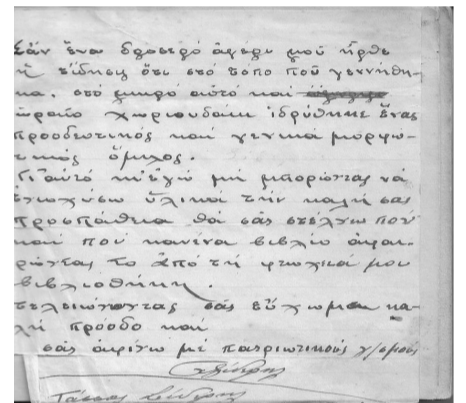 Σάν ἕνα δροσερό ἀγέρι μοῦ ἦρθε
ἡ εἴδησις ὅτι στό τόπο ποῦ γεννήθη-
κα. στό μικρό αὐτό καί
ὡραῖο χωριουδάκι ἱδρύθηκε ἕνας
προοδευτικός καί γενικά μορφω-
τικός ὅμιλος.
Γι αὐτό κι' ἐγώ μή μπορῶντας νά
ἐνισχύσω ὑλικά τήν καλή σας
προσπάθεια θά σᾶς στέλνω ποῦ
καί ποῦ κανένα βιβλίο ἀφαι-
ρῶντας το ἀπό τή φτωχικιά μου
βιβλιοθήκη.
τελειώνοντας σᾶς εὔχωμαι κα-
λή πρόοδο καί
σᾶς ἀφίνω μέ πατριωτικούς χ/σμούς